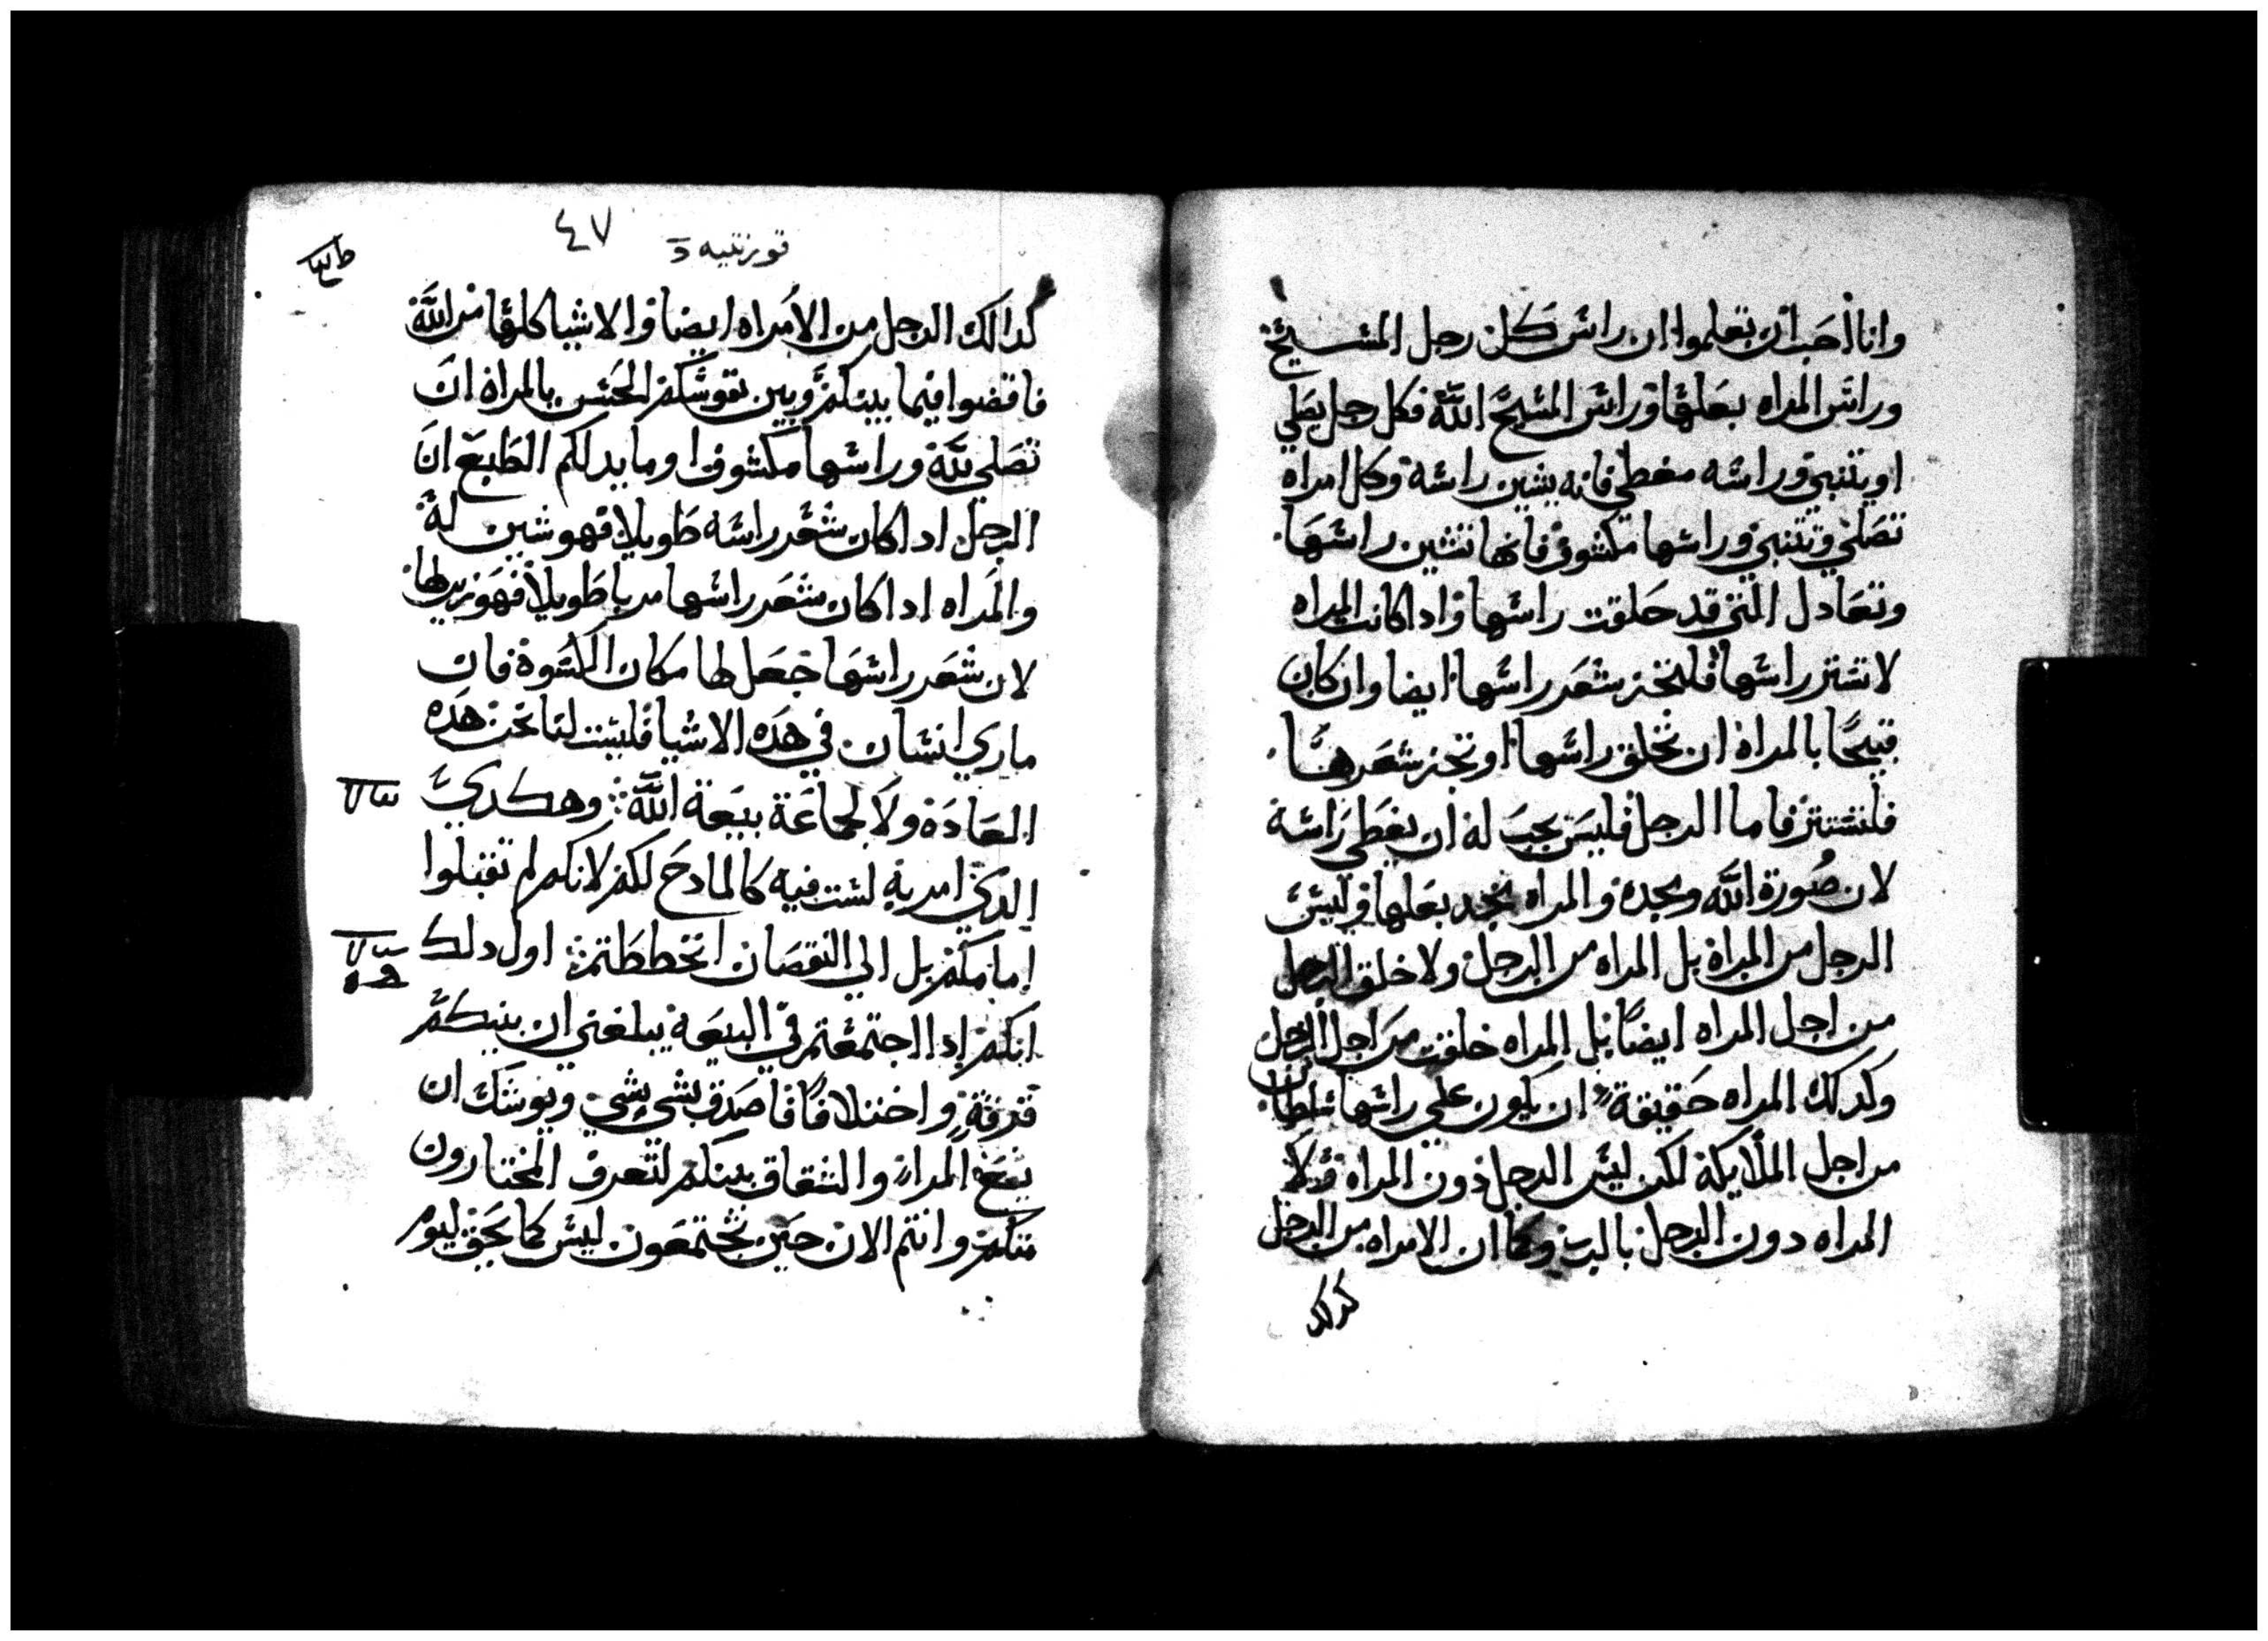 وانا احب ان تعلموا ان راس كل رجل المسيح
وراس المراه بعلها وراس المسيح الله فكل رجل يصلي
او يتنبي وراسه مغطي فانه يشين راسه وكل امراه
تصلي وتتنبي وراسها مكشوف فانها تشين راسها
وتعادل التي قد حلقت راسها واذا كانت المراه
لا تستر راسها فلتجز شعر راسها ايضا وان كان
قبيحا بالمراة ان تحلق راسها او تجز شعرها
فلتستتر فاما الرجل فليس يجب له ان يغطي راسه
لان صورة الله ومجده والمراه مجد بعلها وليس
الرجل من المراة بل المراه من الرجل ولا خلق الرجل
من اجل المراه ايضا بل المراه خلقت من اجل الرجل
وكذلك المراه حقيقة ان يكون علي راسها سلطان
من اجل الملايكة لكن ليس الرجل دون المراه ولا
المراه دون الرجل بالرب وكما ان الامراه من الرجل
كدلك
قورنتيه
٤٧
كدالك الرجل من الامراه ايضا والاشيا كلها من الله
فاقضوا فيما بينكم وبين نفوسكم الحسن بالمراة ان
تصلي لله وراسها مكشوف او ما يدلكم الطبع ان
الرجل ادا كان شعر راسه طويلا فهو شين له
والمراه ادا كان شعر راسها مربا طويلا فهو زين لها
لان شعر راسها جعل لها مكان الكسوة فان
ماري انسان في هده الاشيا فليست لنا نحن هده
العادة ولا لجماعة بيعة الله وهكدي
الدي امر به لست فيه كالمادح لكم لانكم لم تقبلوا
امامكم بل الي النقصان انحططتم اول دلك
انكم ادا اجتمعتم في البيعة يبلغني ان بينكم
فرقة واختلافا فاصدق بشي بشي ويوشك ان
يقع المرا والشقاق بينكم لتعرف المختارون
منكم وانتم الان حين تجتمعون ليس كما يحق ليوم